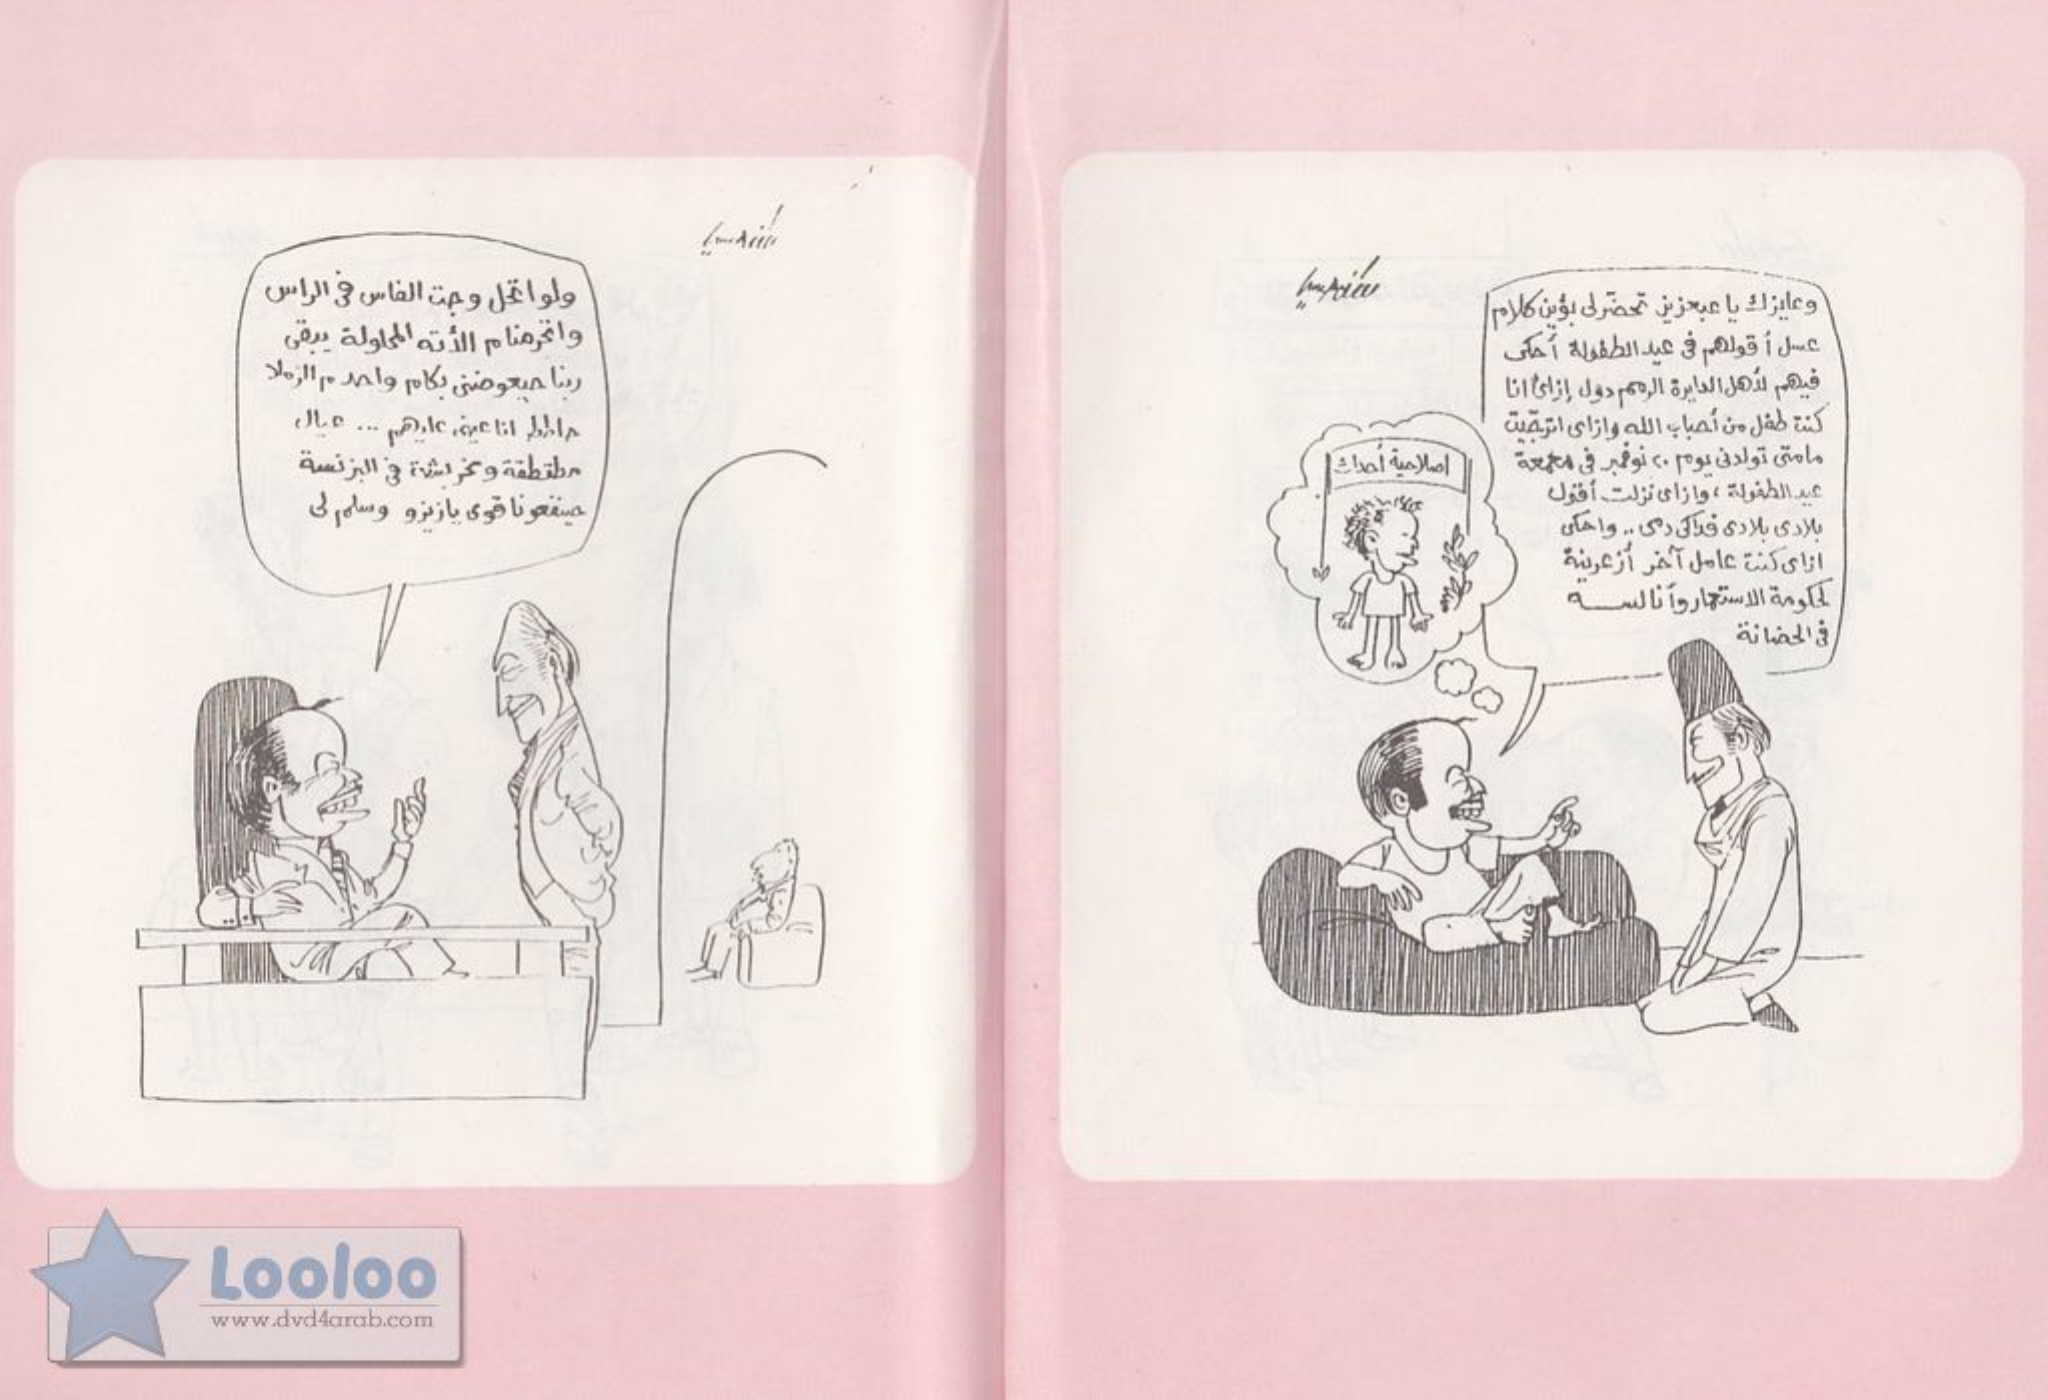 وعايزك يا عبعزيز تحضرلى بؤين كلام
عسل أقولهم فى عيد الطفولة أحكى
فيهم لأهل الدايرة الرمم دول إزاى انا
كنت طفل من أحباب الله وازاى اترجيت
مامتى تولدنى يوم ٢٠ نوفمبر فى معمعة
عيد الطفولة، وازاى نزلت أقول
بلادى بلادى فداكى دمى .. واحكى
ازاى كنت عامل آخر أزعرينة
لحكومة الاستعمار وأنا لسه
فى الحضانة
اصلاحية أحداث
ولو اتحل وجت الفاس فى الراس
واتحرمنا م الأنه المحاولة يبقى
ربنا حيعوضنى بكام واحد م الزملا
انا عينى عليهم ... عيال
مطقطقة ومخربشة فى البزنسة
حينفعونا قوى يا زيزو وسلم لى
Looloo
www.dvd4arab.com